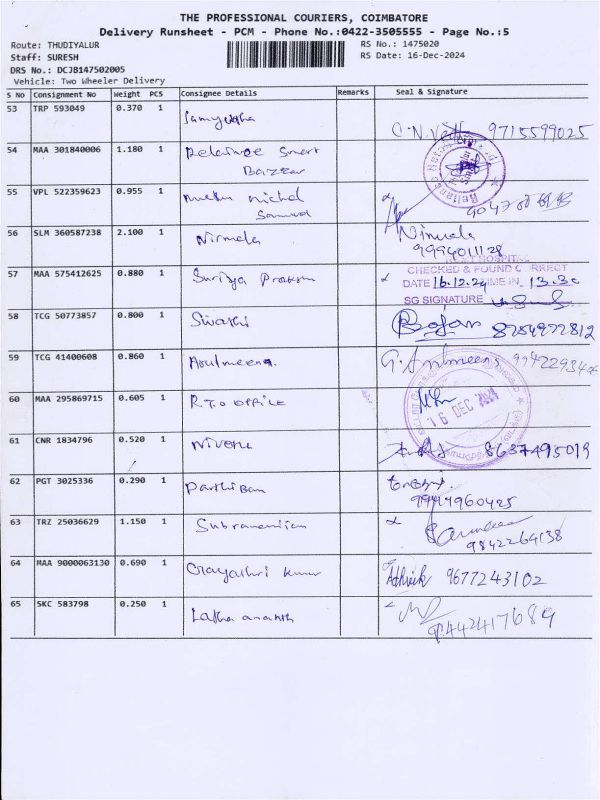 THE PROFESSIONAL COURIERS, COIMBATORE
Delivery Runsheet - PCM - Phone No.:0422-3505555 - Page No.:5
Route: THUDIYALUR
RS No.: 1475020
Staff: SURESH
RS Date: 16-Dec-2024
DRS No.: DCJB147502005
Vehicle: Two Wheeler Delivery
S No Consignment No Weight PCS Consignee Details Remarks Seal & Signature
53 TRP 593049 0.370 1 9715599025
54 MAA 301840006 1.180 1 Smart Bazaar
55 VPL 522359623 0.955 1 Michel Samuel
56 SLM 360587238 2.100 1 Nirmala Nirmala
9994011128
HOSPITAL
CHECKED & FOUND CORRECT
57 MAA 575412625 0.880 1 Suriya Prakash DATE 16.12.24 TIME IN 13.30
SG SIGNATURE
58 TCG 50773857 0.800 1 Sivasri 8254922812
59 TCG 41400608 0.860 1 Arulmeena
60 MAA 295869715 0.605 1 RTO OFFICE 16 DEC
61 CNR 1834796 0.520 1 8637495019
62 PGT 3025336 0.290 1 Parthiban
63 TRZ 25036629 1.150 1 Subramaniian 9842264138
64 MAA 9000063130 0.690 1 Gayathri Kumar 9677243102
65 SKC 583798 0.250 1 Latha ananth 9442417689